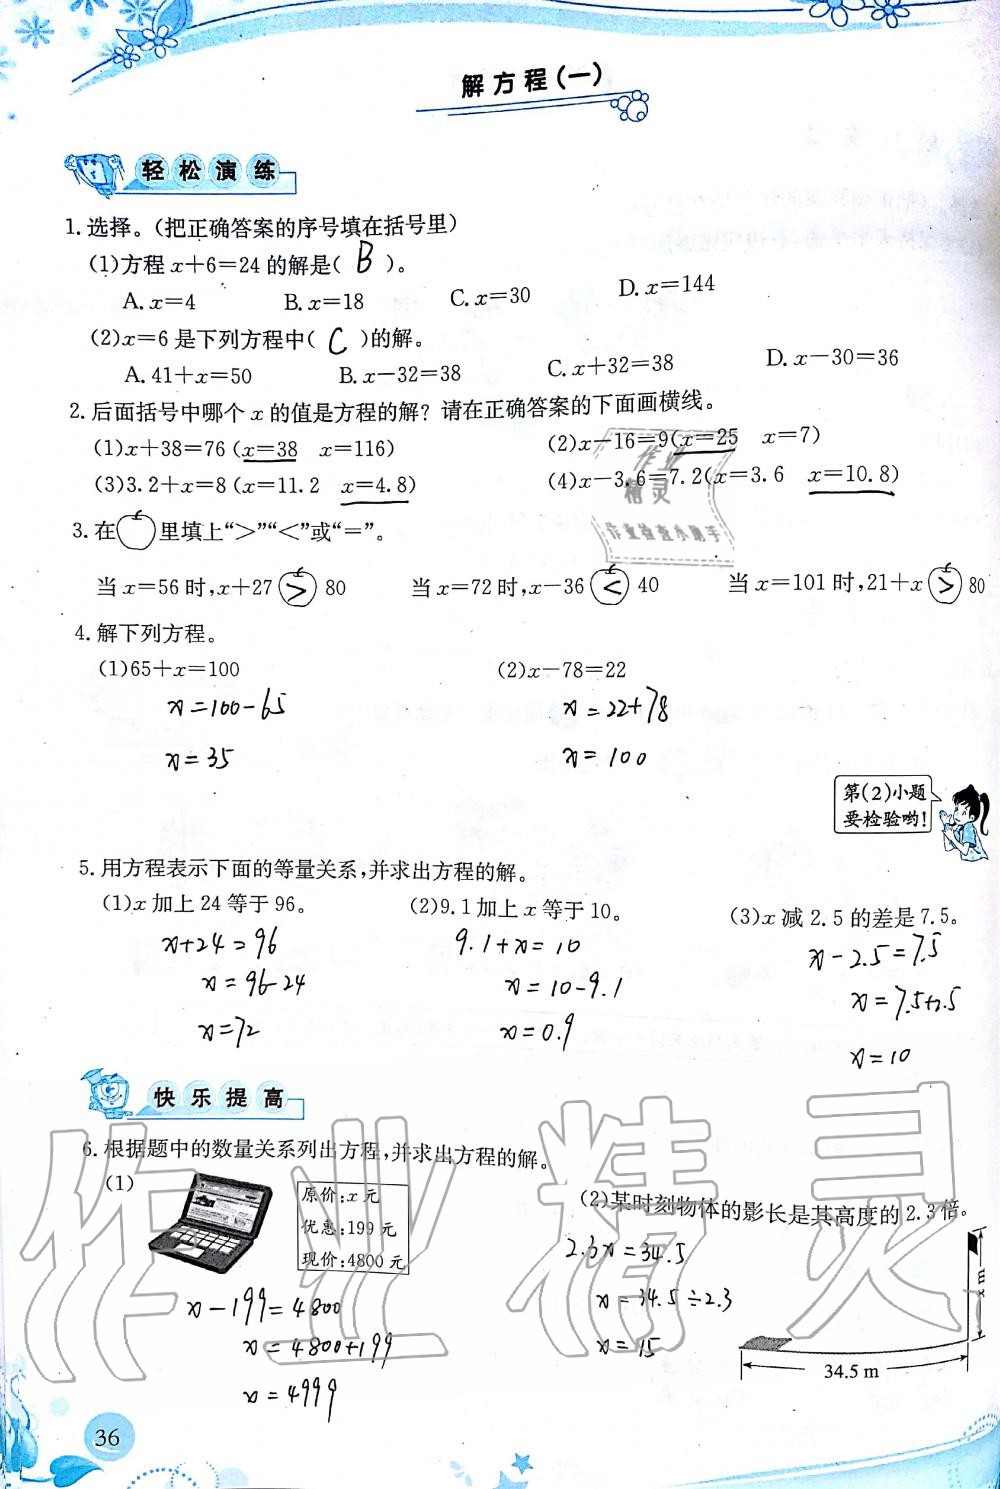 解方程(一)
轻松演练
1.选择。(把正确答案的序号填在括号里)
(1)方程x+6=24的解是( B )。
A.x=4 B.x=18 C.x=30 D.x=144
(2)x=6是下列方程中( C )的解。
A.41+x=50 B.x-32=38 C.x+32=38 D.x-30=36
2.后面括号中哪个x的值是方程的解?请在正确答案的下面画横线。
(1)x+38=76(x=38 x=116) (2)x-16=9(x=25 x=7)
(3)3.2+x=8(x=11.2 x=4.8) (4)x-3.6=7.2(x=3.6 x=10.8)
3.在 里填上“>”“<”或“=”。
当x=56时,x+27 > 80 当x=72时,x-36 < 40 当x=101时,21+x > 80
4.解下列方程。
(1)65+x=100 (2)x-78=22
x=100-65 x=22+78
x=35 x=100
第(2)小题
要检验哟!
5.用方程表示下面的等量关系,并求出方程的解。
(1)x加上24等于96。 (2)9.1加上x等于10。 (3)x减2.5的差是7.5。
x+24=96 9.1+x=10 x-2.5=7.5
x=96-24 x=10-9.1 x=7.5+2.5
x=72 x=0.9 x=10
快乐提高
6.根据题中的数量关系列出方程,并求出方程的解。
(1)
原价:x元
优惠:199元
现价:4800元
x-199=4800
x=4800+199
x=4999
(2)某时刻物体的影长是其高度的2.3倍。
2.3x=34.5
x=34.5÷2.3
x=15
x m
34.5 m
36
作业精灵
作业
精灵
作业检查小助手